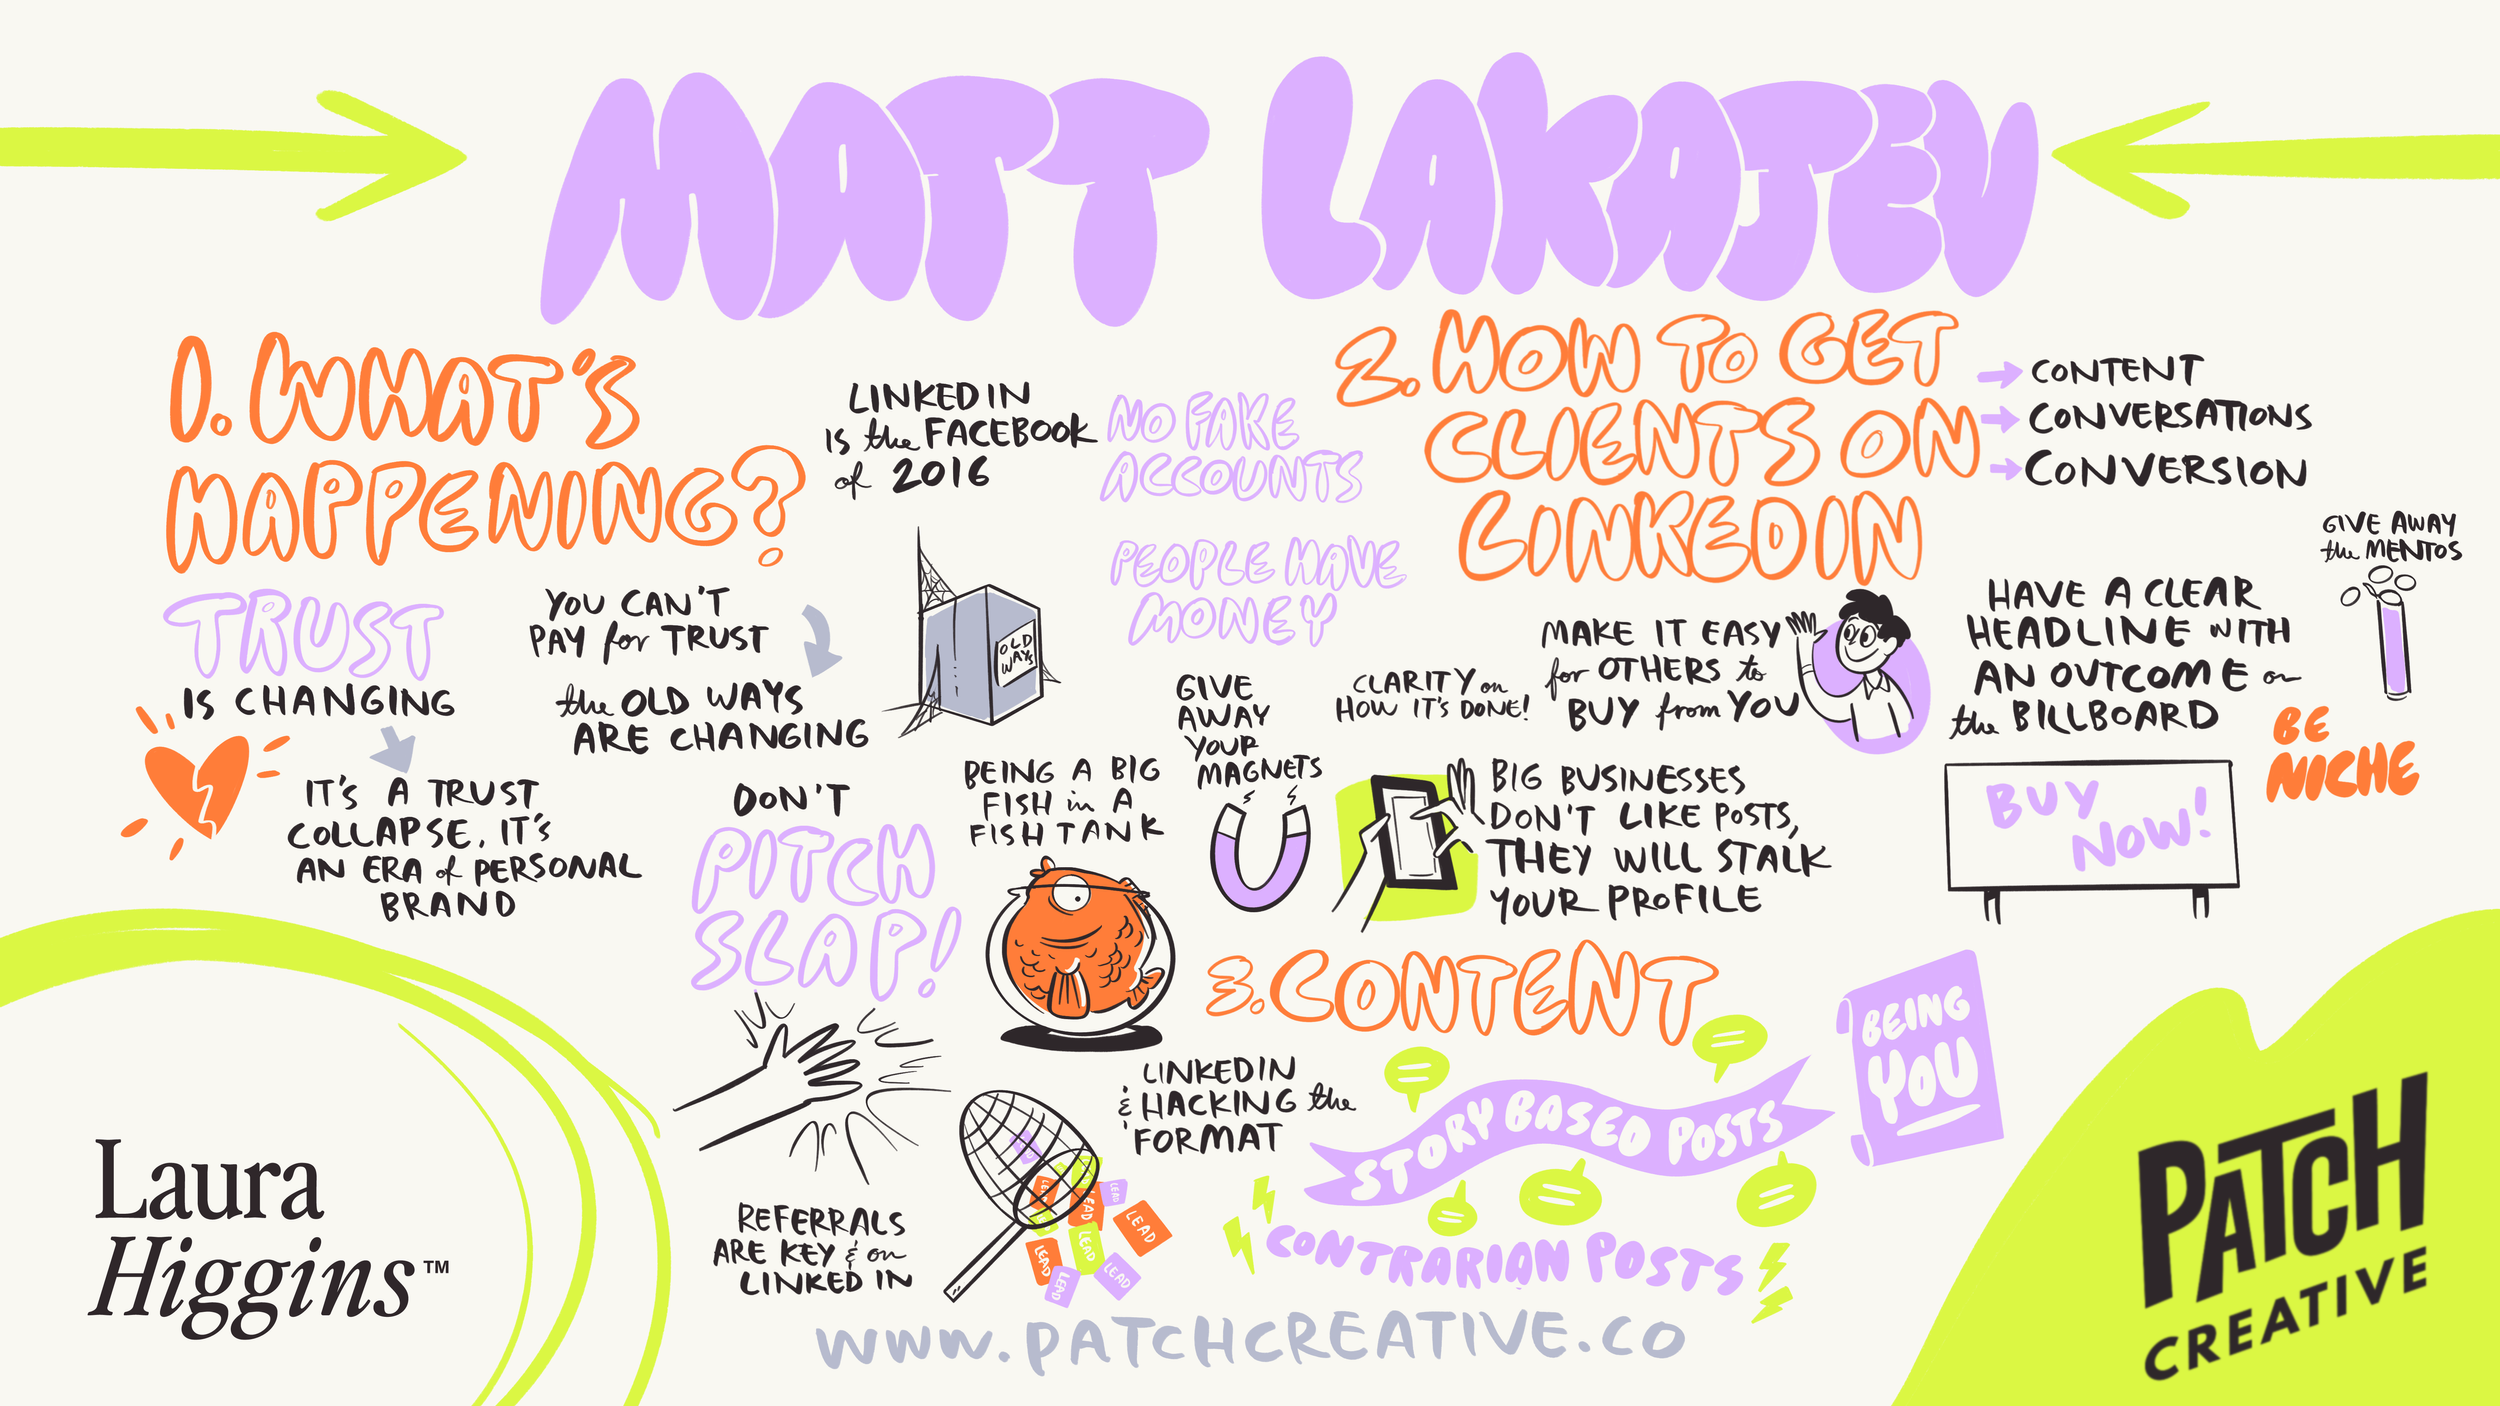 MATT LAKAJEV
1. WHAT'S
HAPPENING?
TRUST
IS CHANGING
IT'S A TRUST
COLLAPSE, IT'S
AN ERA of PERSONAL
BRAND
YOU CAN'T
PAY for TRUST
the OLD WAYS
ARE CHANGING
OLD
WAYS
LINKED IN
IS the FACEBOOK
of 2016
NO FAKE
ACCOUNTS
PEOPLE HAVE
MONEY
DON'T
PITCH
SLAP!
BEING A BIG
FISH in A
FISH TANK
REFERRALS
ARE KEY & on
LINKED IN
LEAD
LEAD
LEAD
LEAD
LEAD
LEAD
LEAD
LEAD
LEAD
2. HOW TO GET
CLIENTS ON
LINKEDIN
CONTENT
CONVERSATIONS
CONVERSION
GIVE
AWAY
YOUR
MAGNETS
CLARITY on
HOW IT'S DONE!
MAKE IT EASY
for OTHERS to
BUY from YOU
BIG BUSINESSES
DON'T LIKE POSTS,
THEY WILL STALK
YOUR PROFILE
HAVE A CLEAR
HEADLINE WITH
AN OUTCOME on
the BILLBOARD
BUY
NOW!
GIVE AWAY
the MENTOS
BE
NICHE
3. CONTENT
LINKED IN
& HACKING the
FORMAT
STORY BASED POSTS
CONTRARIAN POSTS
BEING
YOU
Laura
Higgins™
WWW.PATCHCREATIVE.CO
PATCH
CREATIVE